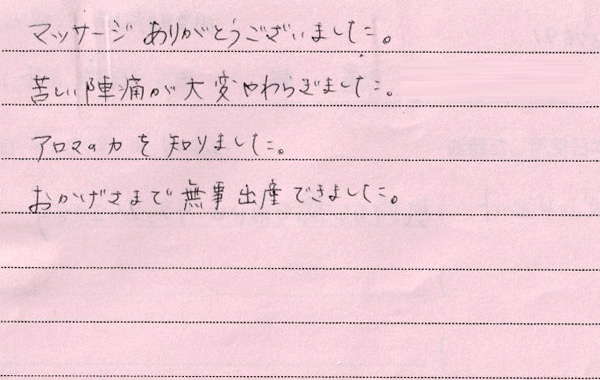 マッサージ ありがとうございました。
苦しい陣痛が大変やわらぎました。
アロマの力を知りました。
おかげさまで無事出産できました。